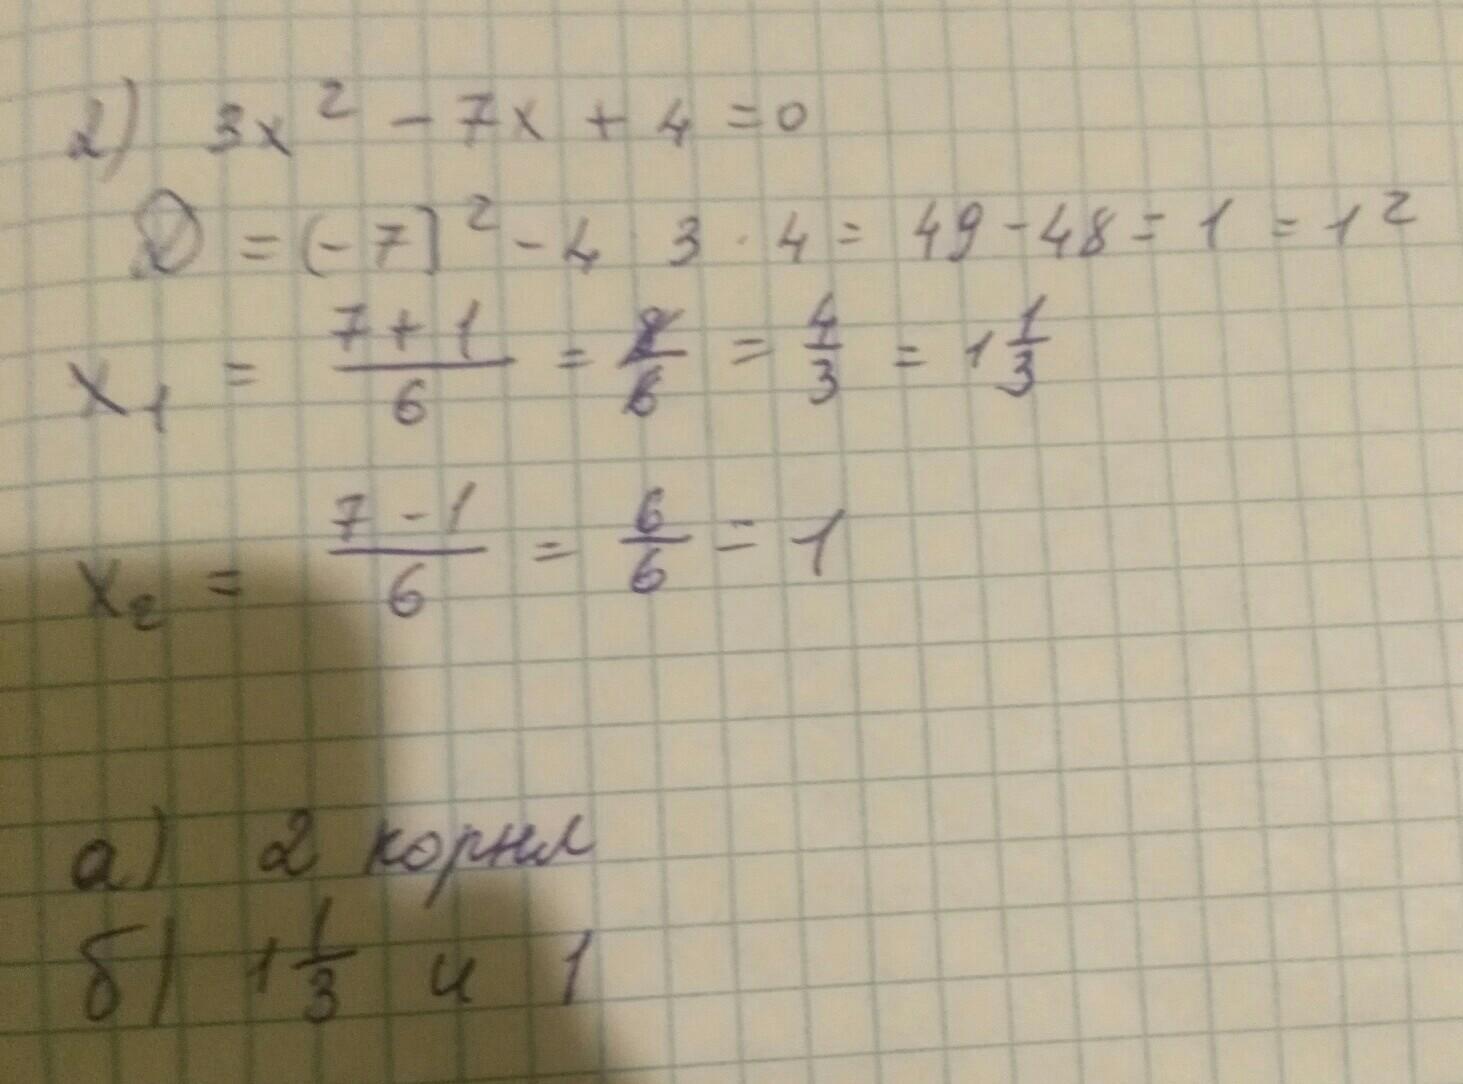 2) 3x² - 7x + 4 = 0
D = (-7)² - 4 · 3 · 4 = 49 - 48 = 1 = 1²
x₁ = (7 + 1)/6 = 8/6 = 4/3 = 1 1/3
x₂ = (7 - 1)/6 = 6/6 = 1
а) 2 корня
б) 1 1/3 и 1